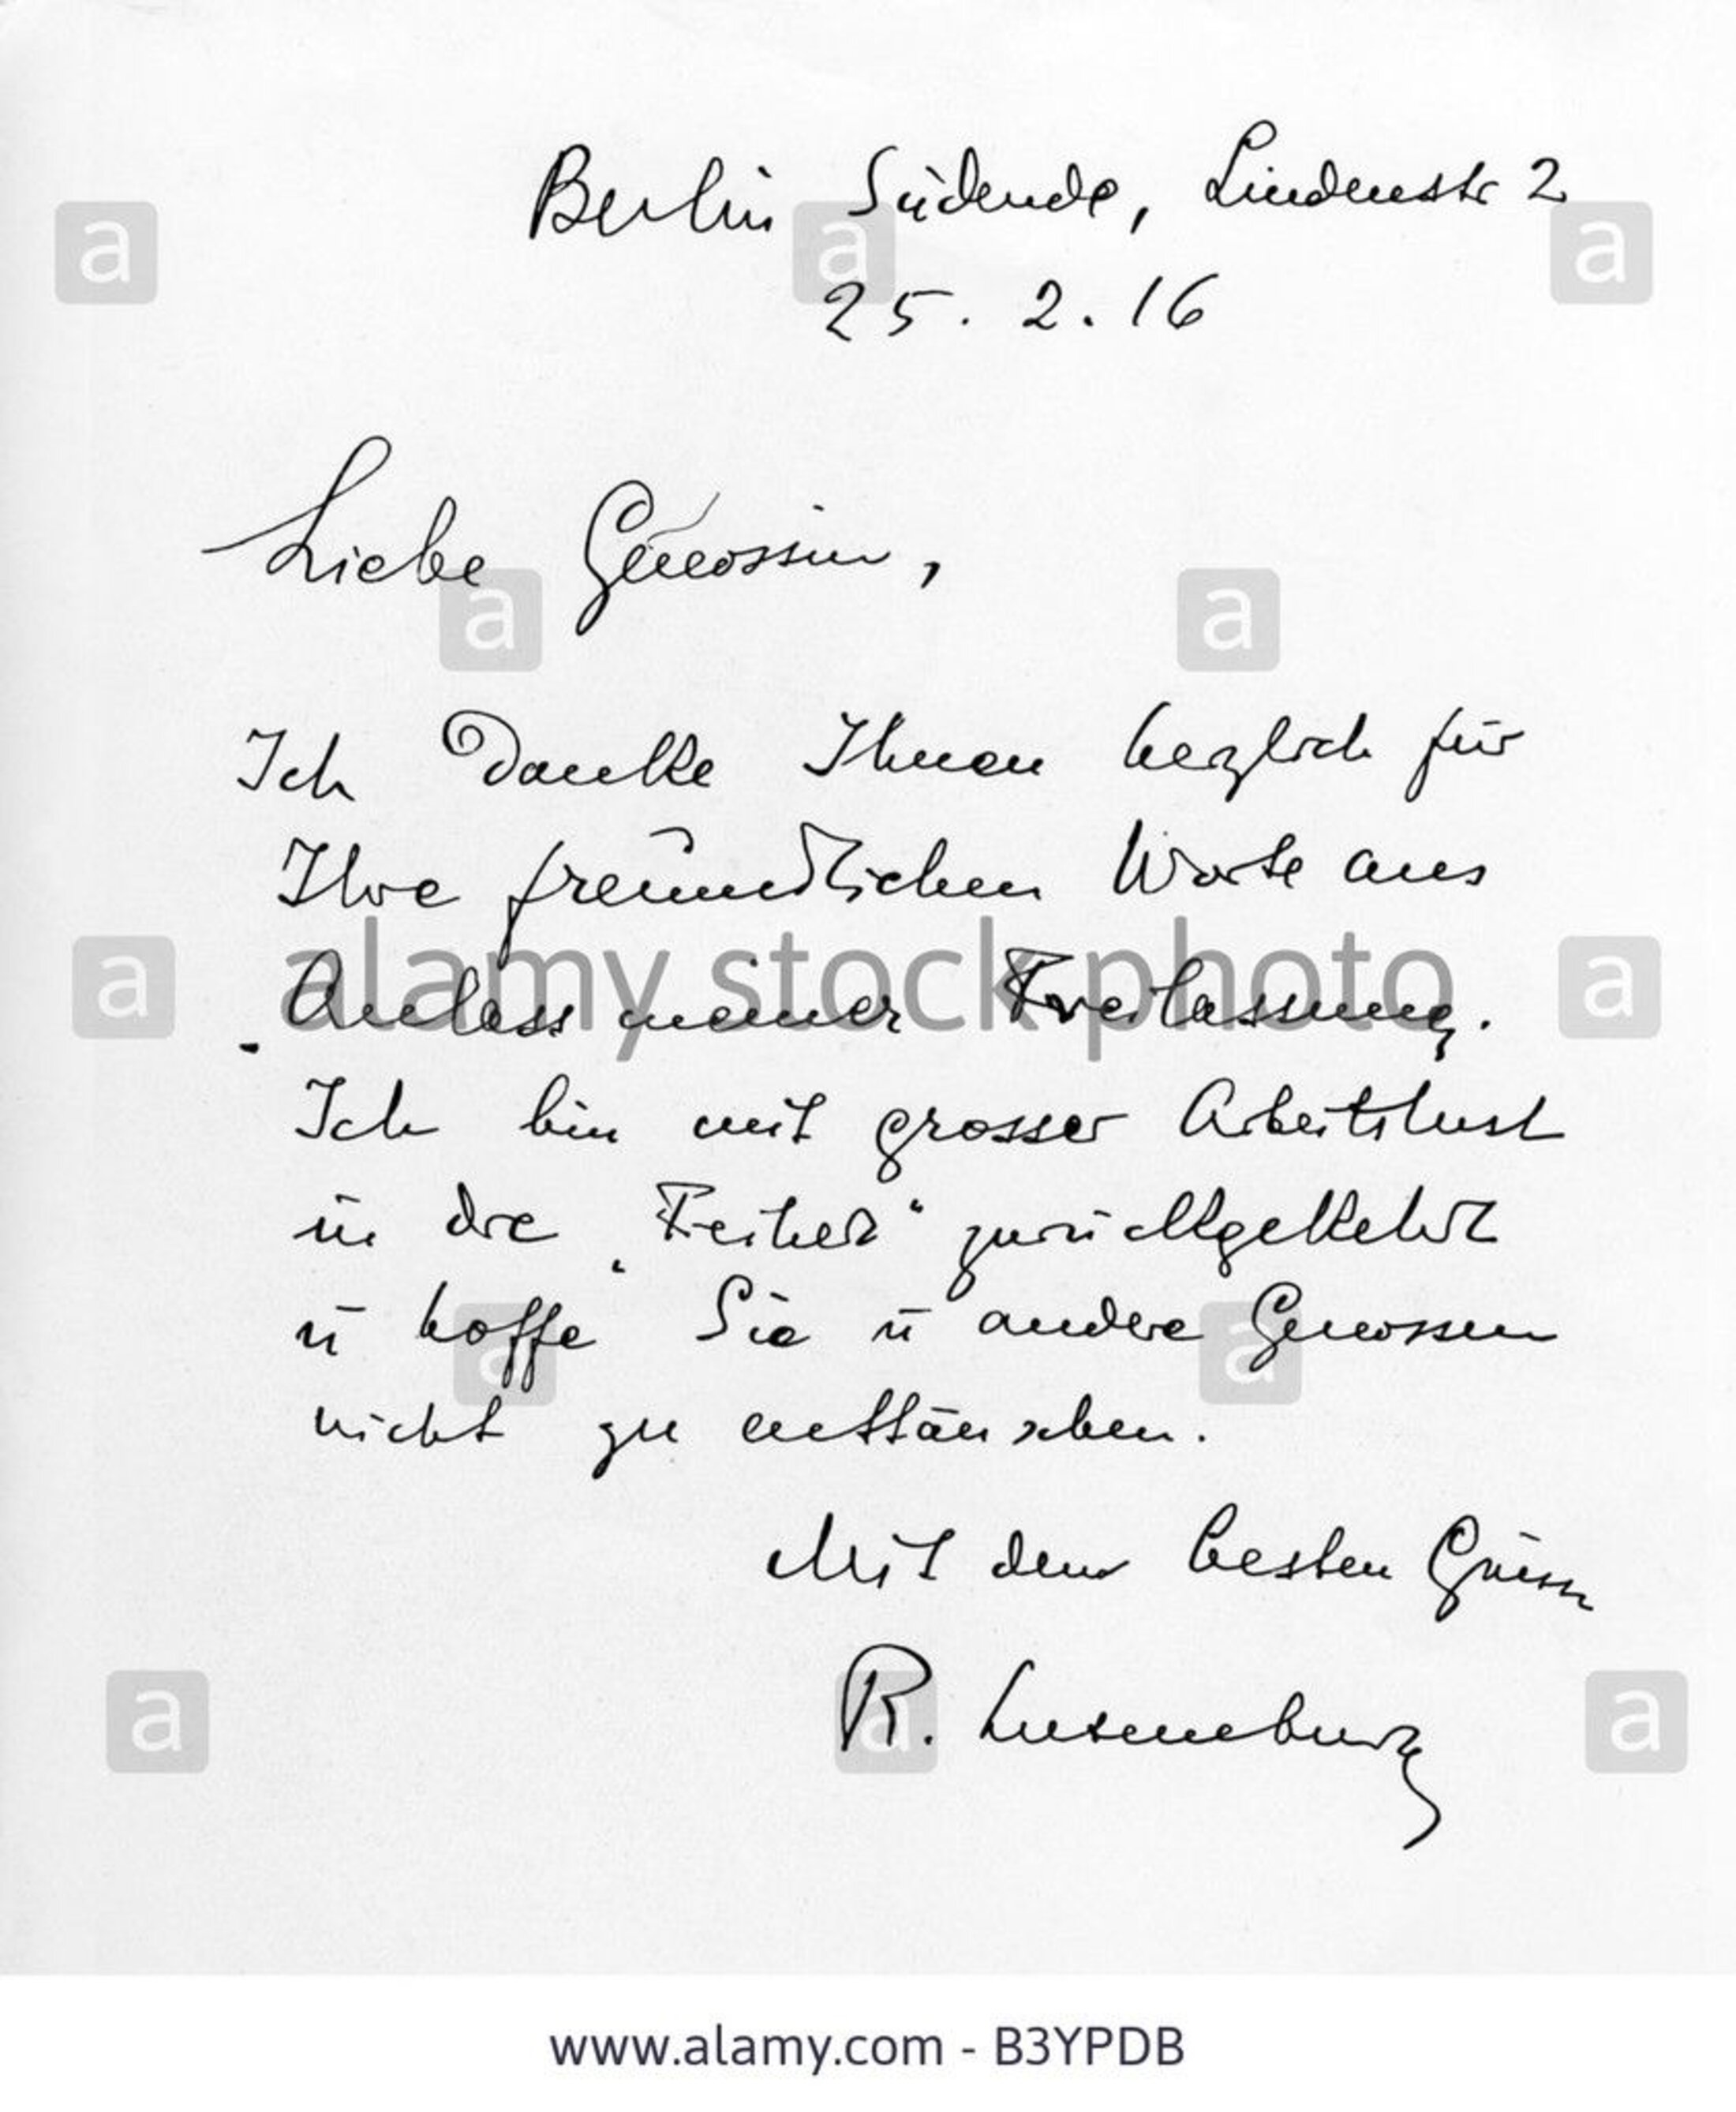 Berlin Südende, Lindenstr 2
25. 2. 16
Liebe Genossin,
Ich danke Ihnen herzlich für
Ihre freundlichen Worte aus
Anlass meiner Freilassung.
Ich bin mit grosser Arbeitslust
in die „Freiheit“ zurückgekehrt
u hoffe Sie u andere Genossen
nicht zu enttäuschen.
Mit dem besten Gruss
R. Luxemburg
a a a
a a
a alamy stock photo a
a a
a a a
www.alamy.com - B3YPDB